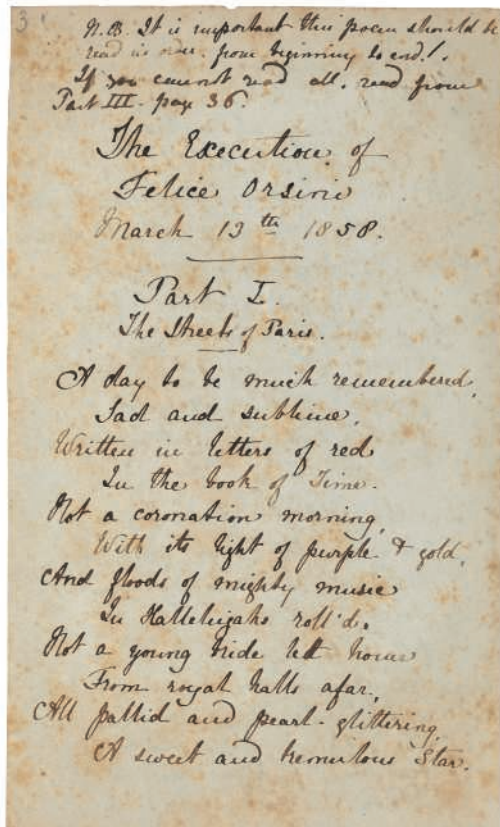 3
N.B. It is important this poem should be
read in one. from beginning to end!.
If you cannot read all, read from
Part III. page 36.
The Execution of
Felice Orsini
March 13th 1858.
Part I.
The Streets of Paris.
A day to be much remembered,
Sad and sublime,
Written in letters of red
In the book of Time.
Not a coronation morning,
With its light of purple & gold,
And floods of mighty music
In Hallelujahs roll'd.
Not a young bride led home
From royal halls afar,
All pallid and pearl-glittering,
A sweet and tremulous Star.